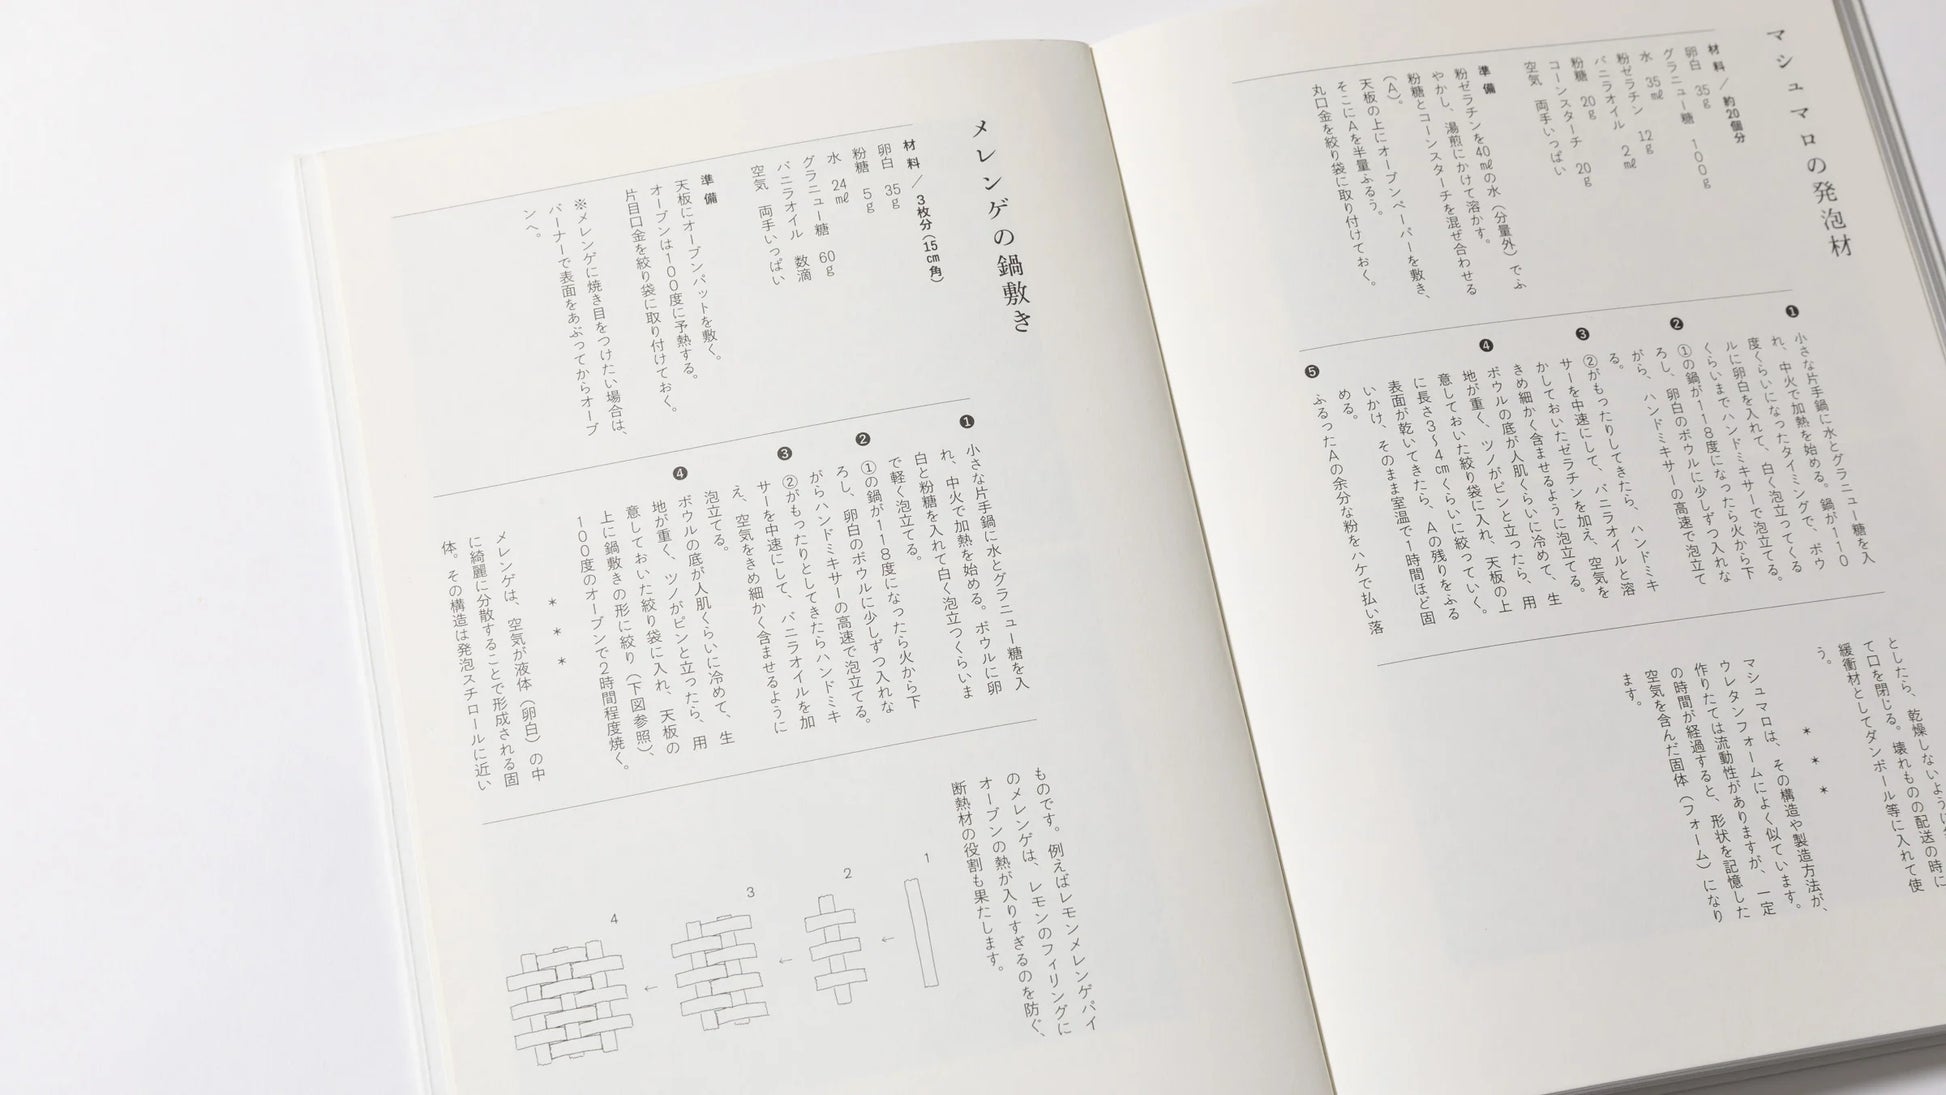 マシュマロの発泡材
材料／約20個分
卵白　35g
グラニュー糖　100g
水　35㎖
粉ゼラチン　12g
バニラオイル　2㎖
粉糖　20g
コーンスターチ　20g
空気　両手いっぱい
準備
粉ゼラチンを40㎖の水（分量外）でふ
やかし、湯煎にかけて溶かす。
粉糖とコーンスターチを混ぜ合わせる
（A）。
天板の上にオーブンペーパーを敷き、
そこにAを半量ふるう。
丸口金を絞り袋に取り付けておく。
❶
小さな片手鍋に水とグラニュー糖を入
れ、中火で加熱を始める。鍋が110
度くらいになったタイミングで、ボウ
ルに卵白を入れて、白く泡立ってくる
くらいまでハンドミキサーで泡立てる。
❷
①の鍋が118度になったら火から下
ろし、卵白のボウルに少しずつ入れな
がら、ハンドミキサーの高速で泡立て
る。
❸
②がもったりしてきたら、ハンドミキ
サーを中速にして、バニラオイルと溶
かしておいたゼラチンを加え、空気を
きめ細かく含ませるように泡立てる。
❹
ボウルの底が人肌くらいに冷めて、生
地が重く、ツノがピンと立ったら、用
意しておいた絞り袋に入れ、天板の上
に長さ3〜4㎝くらいに絞っていく。
表面が乾いてきたら、Aの残りをふる
いかけ、そのまま室温で1時間ほど固
める。
❺
ふるったAの余分な粉をハケで払い落
としたら、乾燥しないように
て口を閉じる。壊れものの配送の時に
緩衝材としてダンボール等に入れて使
う。
＊　＊　＊
マシュマロは、その構造や製造方法が、
ウレタンフォームによく似ています。
作りたては流動性がありますが、一定
の時間が経過すると、形状を記憶した
空気を含んだ固体（フォーム）になり
ます。
メレンゲの鍋敷き
材料／3枚分（15㎝角）
卵白　35g
粉糖　5g
水　24㎖
グラニュー糖　60g
バニラオイル　数滴
空気　両手いっぱい
準備
天板にオーブンパットを敷く。
オーブンは100度に予熱する。
片目口金を絞り袋に取り付けておく。
※メレンゲに焼き目をつけたい場合は、
バーナーで表面をあぶってからオーブ
ンへ。
❶
小さな片手鍋に水とグラニュー糖を入
れ、中火で加熱を始める。ボウルに卵
白と粉糖を入れて白く泡立つくらいま
で軽く泡立てる。
❷
①の鍋が118度になったら火から下
ろし、卵白のボウルに少しずつ入れな
がらハンドミキサーの高速で泡立てる。
❸
②がもったりとしてきたらハンドミキ
サーを中速にして、バニラオイルを加
え、空気をきめ細かく含ませるように
泡立てる。
❹
ボウルの底が人肌くらいに冷めて、生
地が重く、ツノがピンと立ったら、用
意しておいた絞り袋に入れ、天板の
上に鍋敷きの形に絞り（下図参照）、
100度のオーブンで2時間程度焼く。
＊　＊　＊
メレンゲは、空気が液体（卵白）の中
に綺麗に分散することで形成される固
体。その構造は発泡スチロールに近い
ものです。例えばレモンメレンゲパイ
のメレンゲは、レモンのフィリングに
オーブンの熱が入りすぎるのを防ぐ、
断熱材の役割も果たします。
1
←
2
←
3
←
4